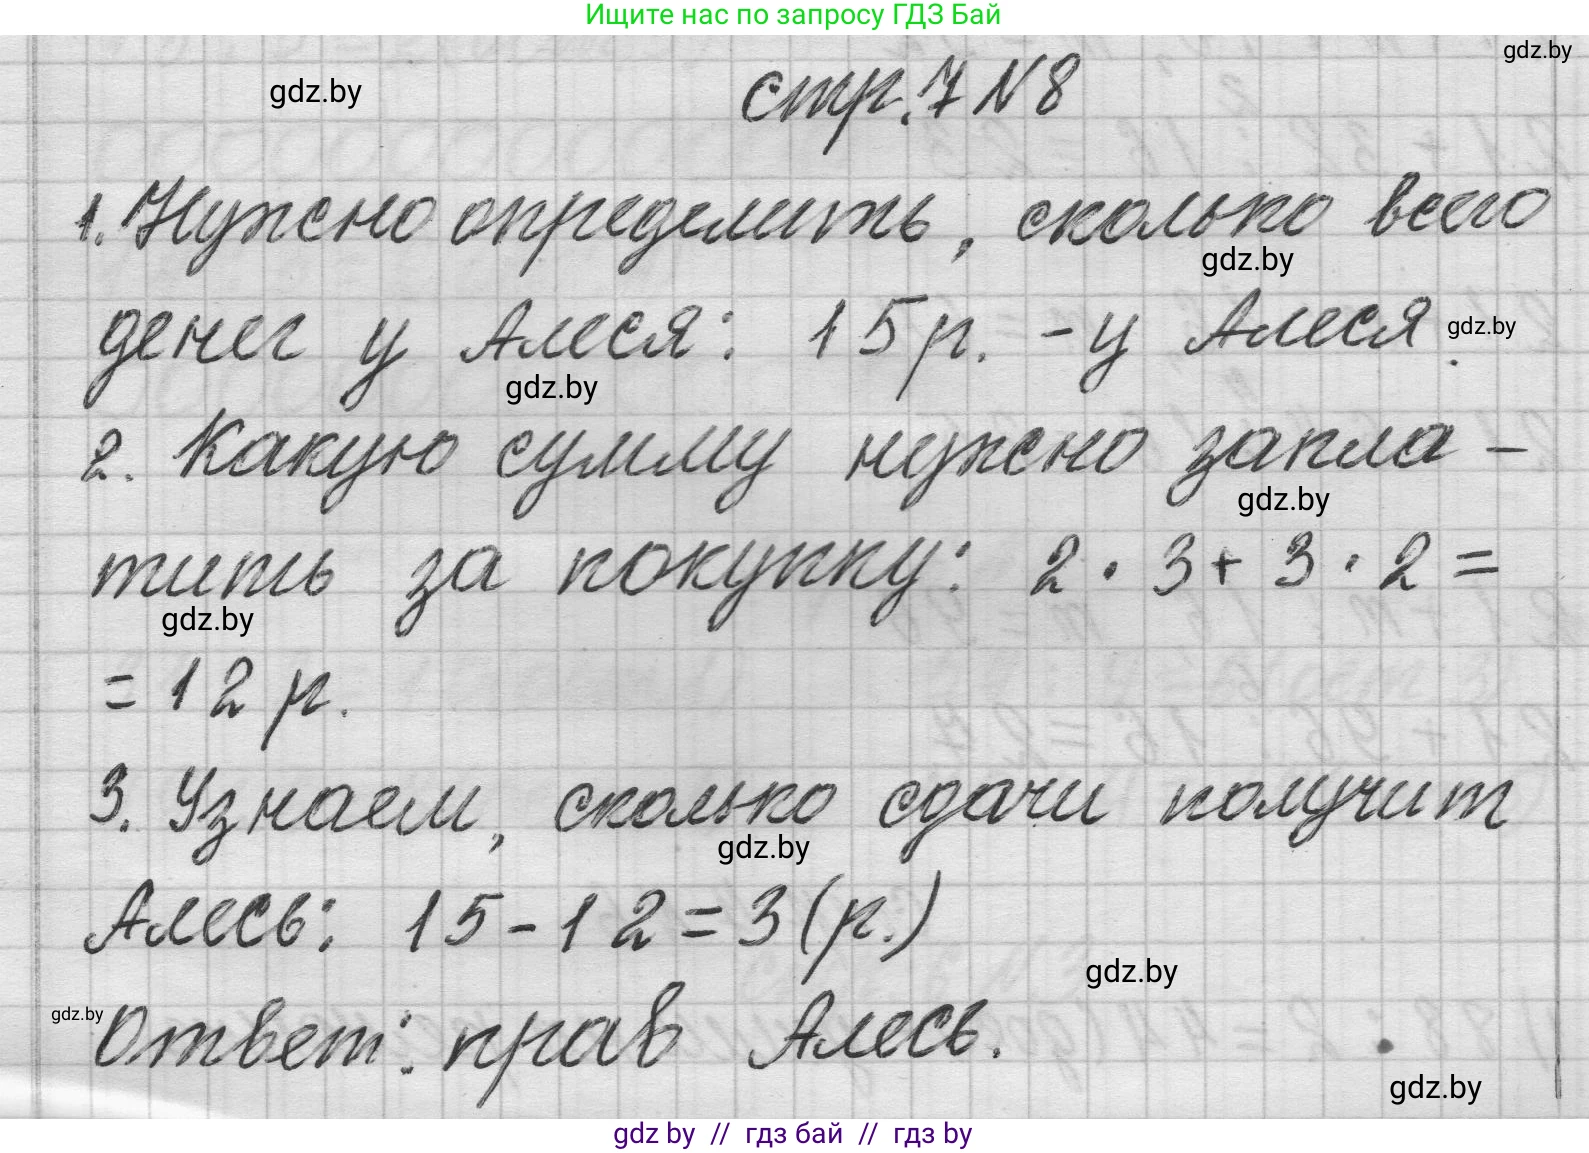 Ищите нас по запросу ГДЗ Бай
gdz.by
gdz.by
стр. 7 N 8
1. Нужно определить, сколько всего
gdz.by
денег у Алеся: 15 р. - у Алеся.
gdz.by
gdz.by
2. Какую сумму нужно запла-
gdz.by
тить за покупку: 2 · 3 + 3 · 2 =
gdz.by
= 12 р.
3. Узнаем, сколько сдачи получит
gdz.by
Алесь: 15 - 12 = 3 (р.)
gdz.by
gdz.by
Ответ: прав Алесь.
gdz.by
gdz by // гдз бай // гдз by